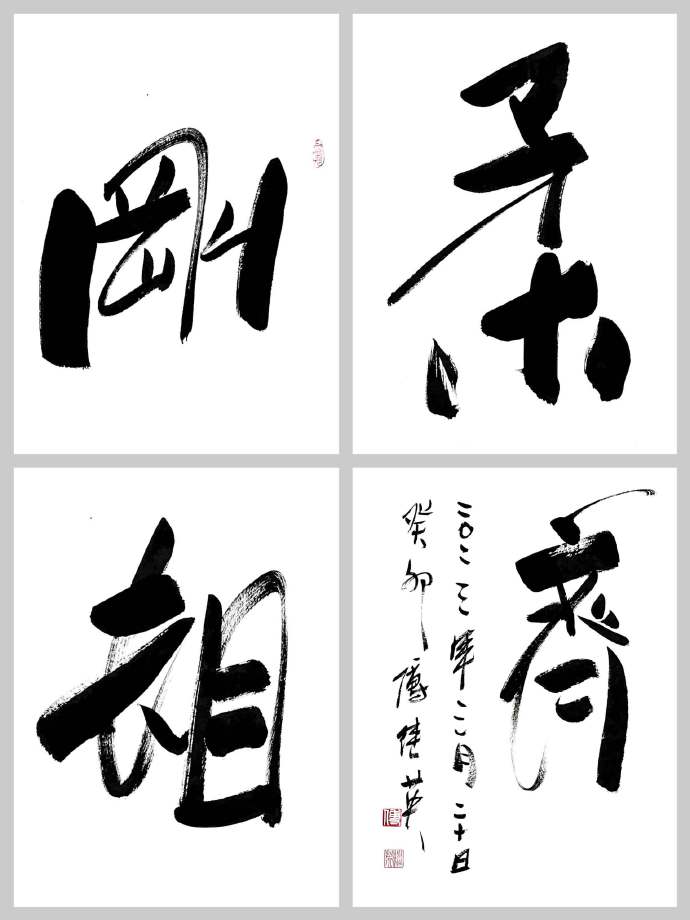 剛
柔
相
齊
二〇二三年二月二十日
癸卯傅佳英